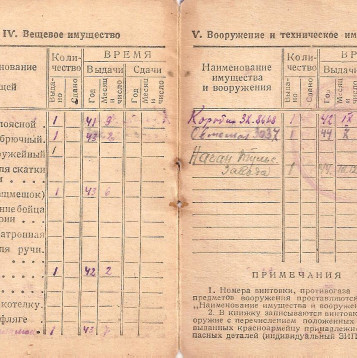 IV. Вещевое имущество
нование
щей
Коли-
чество
Выда-
но
Сдано
ВРЕМЯ
Выдачи
Сдачи
Год
Месяц
и число
Год
Месяц
и число
поясной
1 41 9
брючный
1 43 2
ружейный
1
я скатки
щмешок)
1 43 6
ение бойца
рии
атронная
ля ручн.
1 42 2
котелку
фляге
1 43
V. Вооружение и техническое им
Наименование
имущества
и вооружения
Коли-
чество
Выдано
Сдано
ВРЕМ
Выдачи
Год
Месяц
и число
1 42 IX
1 44 X
Наган
1
ПРИМЕЧАНИЯ
1. Номера винтовки, противогаза
предметов вооружения проставляются
„Наименование имущества и вооружен
2. В книжку записываются винтовк
оружие с перечислением положенных
выданных Красноармейцу принадлежн
пасных деталей (индивидуальный ЗИП